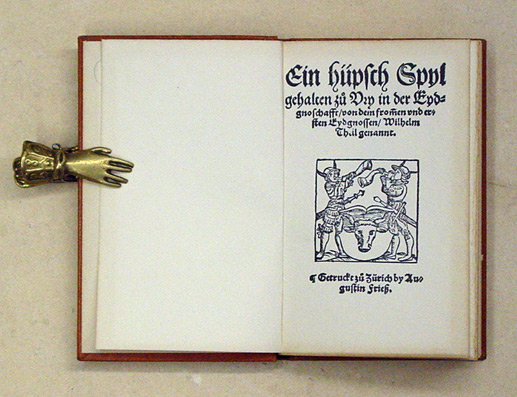 Ein hüpsch Spyl
gehalten zů Ury in der Eyd-
gnoschafft/von dem from̃en vnd er-
sten Eydgnossen/ Wilhelm
Thell genannt.
¶ Getruckt zů Zürich by Au-
gustin Frieß.